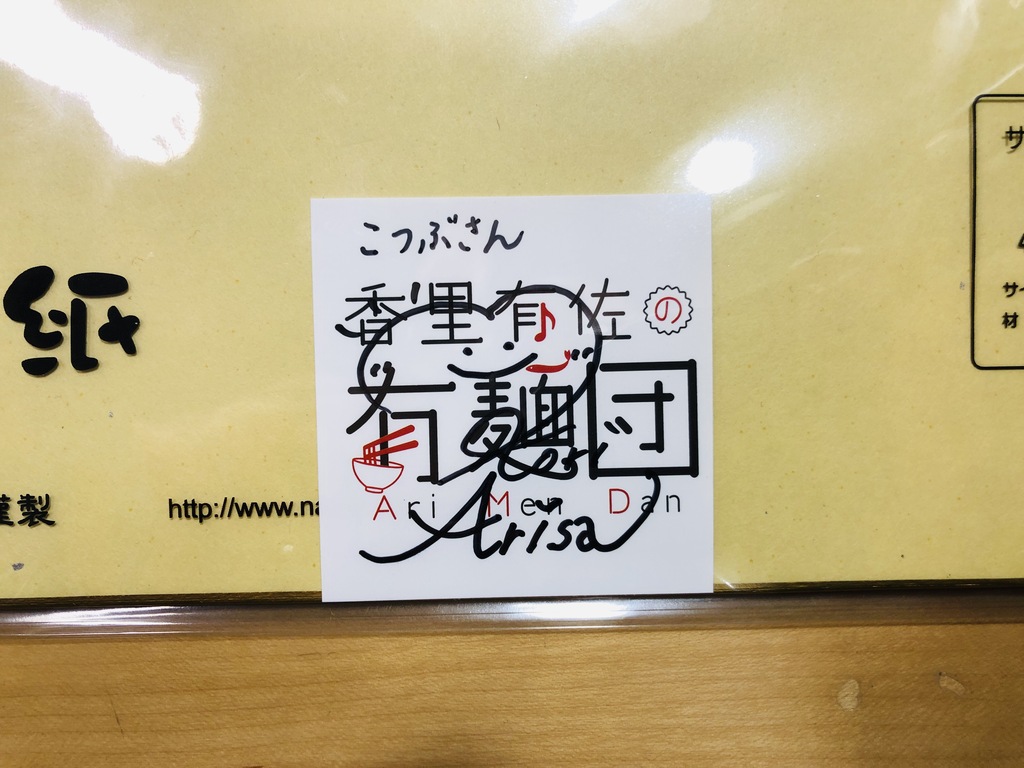 こつぶさん
香里有佐の
有麺団
Ari Men Dan
Arisa
紙
謹製
http://www.na
サ
サイ
材